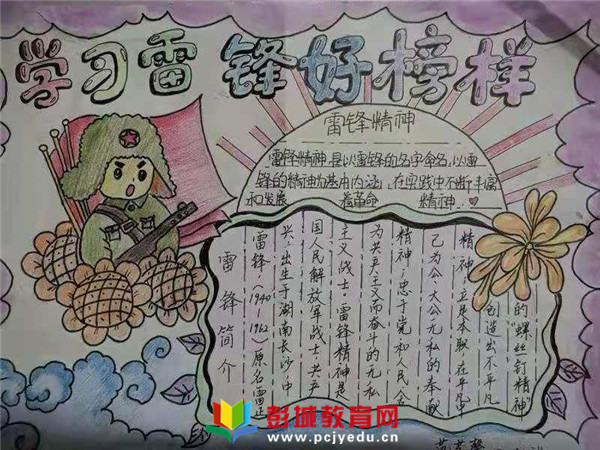 学习雷锋好榜样
雷锋精神
雷锋精神,是以雷锋的名字命名,以雷
锋的精神为基本内涵,在实践中不断丰富
和发展 着革命 精神..
雷锋简介
雷锋(1940-1962)原名雷正
兴,出生于湖南长沙,中
国人民解放军战士,共产
主义战士。雷锋精神是
为共产主义而奋斗的无私
精神;忠于党和人民、舍
己为公、大公无私的奉献
精神;立足本职、在平凡中
创造出不平凡
的"螺丝钉精神"
彭城教育网
www.pcjyedu.cn